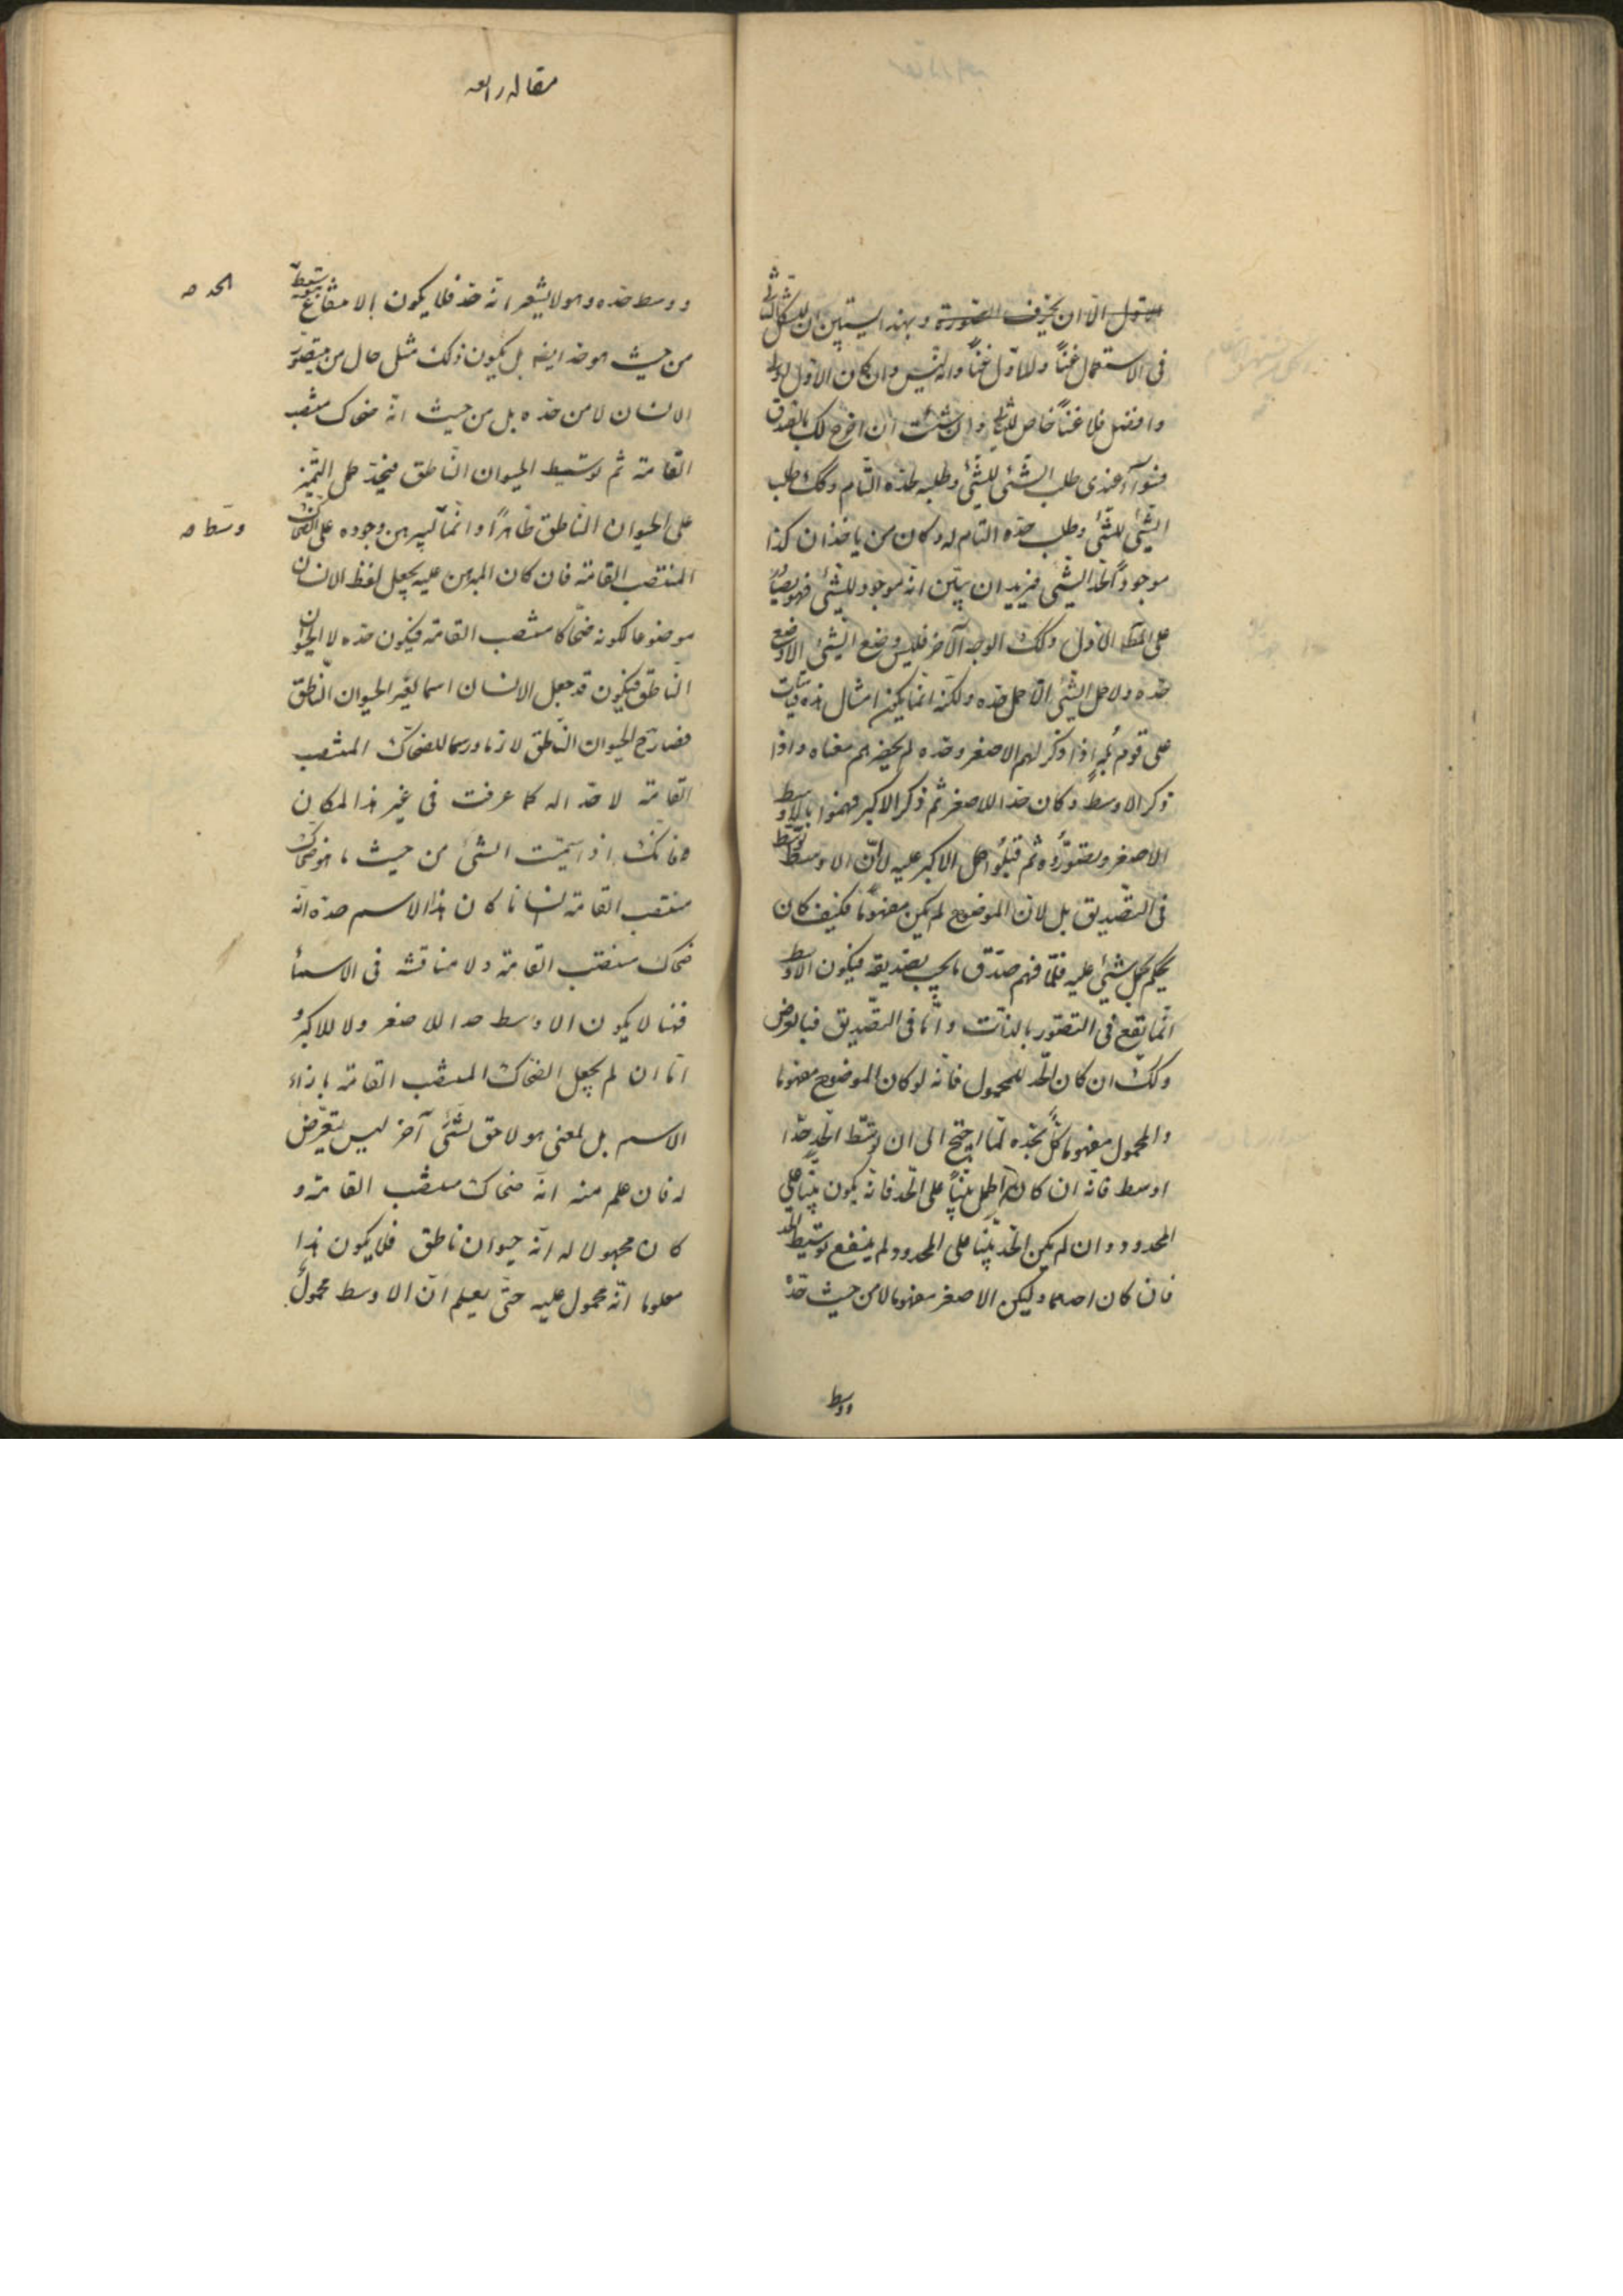 الاول الا ان يحرف الصورة وبهذا يستبين ان للشكل الثانى
فى الاستعمال غنأ وللاول غنأ وانه ليس وان كان الاول اوسط
وافضل فلا غنأ خاص للثانى وان شئت ان اخرج لك بالتصدق
فسوأ عندى طلب الشئ للشئ وطلبه لحده التام وكك طلب
الشئ للشئ وطلب حده التام له وكان من ياخذ ان كذا
موجود لحد الشئ فيريد ان يبين انه موجود للشئ فهو يصادر
على المط الاول وكك الوجه الآخر فليس وضع الشئ الا وضع
حده ولا حمل الشئ الا حمل حده ولكنه انما يكون امثال هذه قياسات
على قوم بُلهٍ اذا ذكر لهم الاصغر وحده لم يحضرهم معناه واذا
ذكر الاوسط وكان حدا للاصغر ثم ذكر الاكبر فهموا بالاوسط
الاصغر وتصوروه ثم قبلوا حمل الاكبر عليه لا لان الاوسط توسط
فى التصديق بل لان الموضوع لم يكن مفهوما فكيف كان
يحكم بحمل شئ عليه فلما فهم صدق ما يجب تصديقه فيكون الاوسط
انما يقع فى التصور بالذات واما فى التصديق فبالعرض
وكك ان كان الحد للمحمول فانه لو كان الموضوع مفهوما
والمحمول مفهوما كل بحده لما احتيج الى ان يوسط الحد حدا
اوسط فانه ان كان الحمل بينا على الحد فانه يكون بينا على
المحدود وان لم يكن الحد بينا على المحدود لم ينفع توسيط الحد
فان كان احدهما وليكن الاصغر مفهوما لا من حيث حده
ووسط
مقاله رابعه
ووسط حده وهو لا يشعر انه حد فلا يكون بالامتناع بتوسيط
من حيث هو حد ايضا بل يكون ذلك مثل حال من يتصور
الانسان لا من حده بل من حيث انه ضحاك منتصب
القامة ثم توسيط الحيوان الناطق فيجد حمل التميز
على الحيوان الناطق ظاهرا وانما يبرهن وجوده على الضحاك
المنتصب القامة فان كان المبرهن عليه يجعل لفظ الانسان
موضوعا لكونه ضحاكا منتصب القامة فيكون حده لا الحيوان
الناطق فيكون قد جعل الانسان اسما لغير الحيوان الناطق
فصار الحيوان الناطق لازما ورسما للضحاك المنتصب
القامة لا حدا له كما عرفت فى غير هذا المكان
فانك اذا سميت الشئ من حيث ما هو ضحاك
منتصب القامة انسانا كان هذا الاسم حده انه
ضحاك منتصب القامة ولا مناقشة فى الاسمأ
فهنا لا يكون الاوسط حدا للاصغر ولا للاكبر و
اما ان لم يجعل الضحاك المنتصب القامة بازاء
الاسم بل لمعنى هو لاحق لشئ آخر ليس يتعرض
له فان علم منه انه ضحاك منتصب القامة و
كان مجهولا له انه حيوان ناطق فلا يكون هذا
معلوما انه محمول عليه حتى يعلم ان الاوسط محمول
الحد صه
وسّط صه